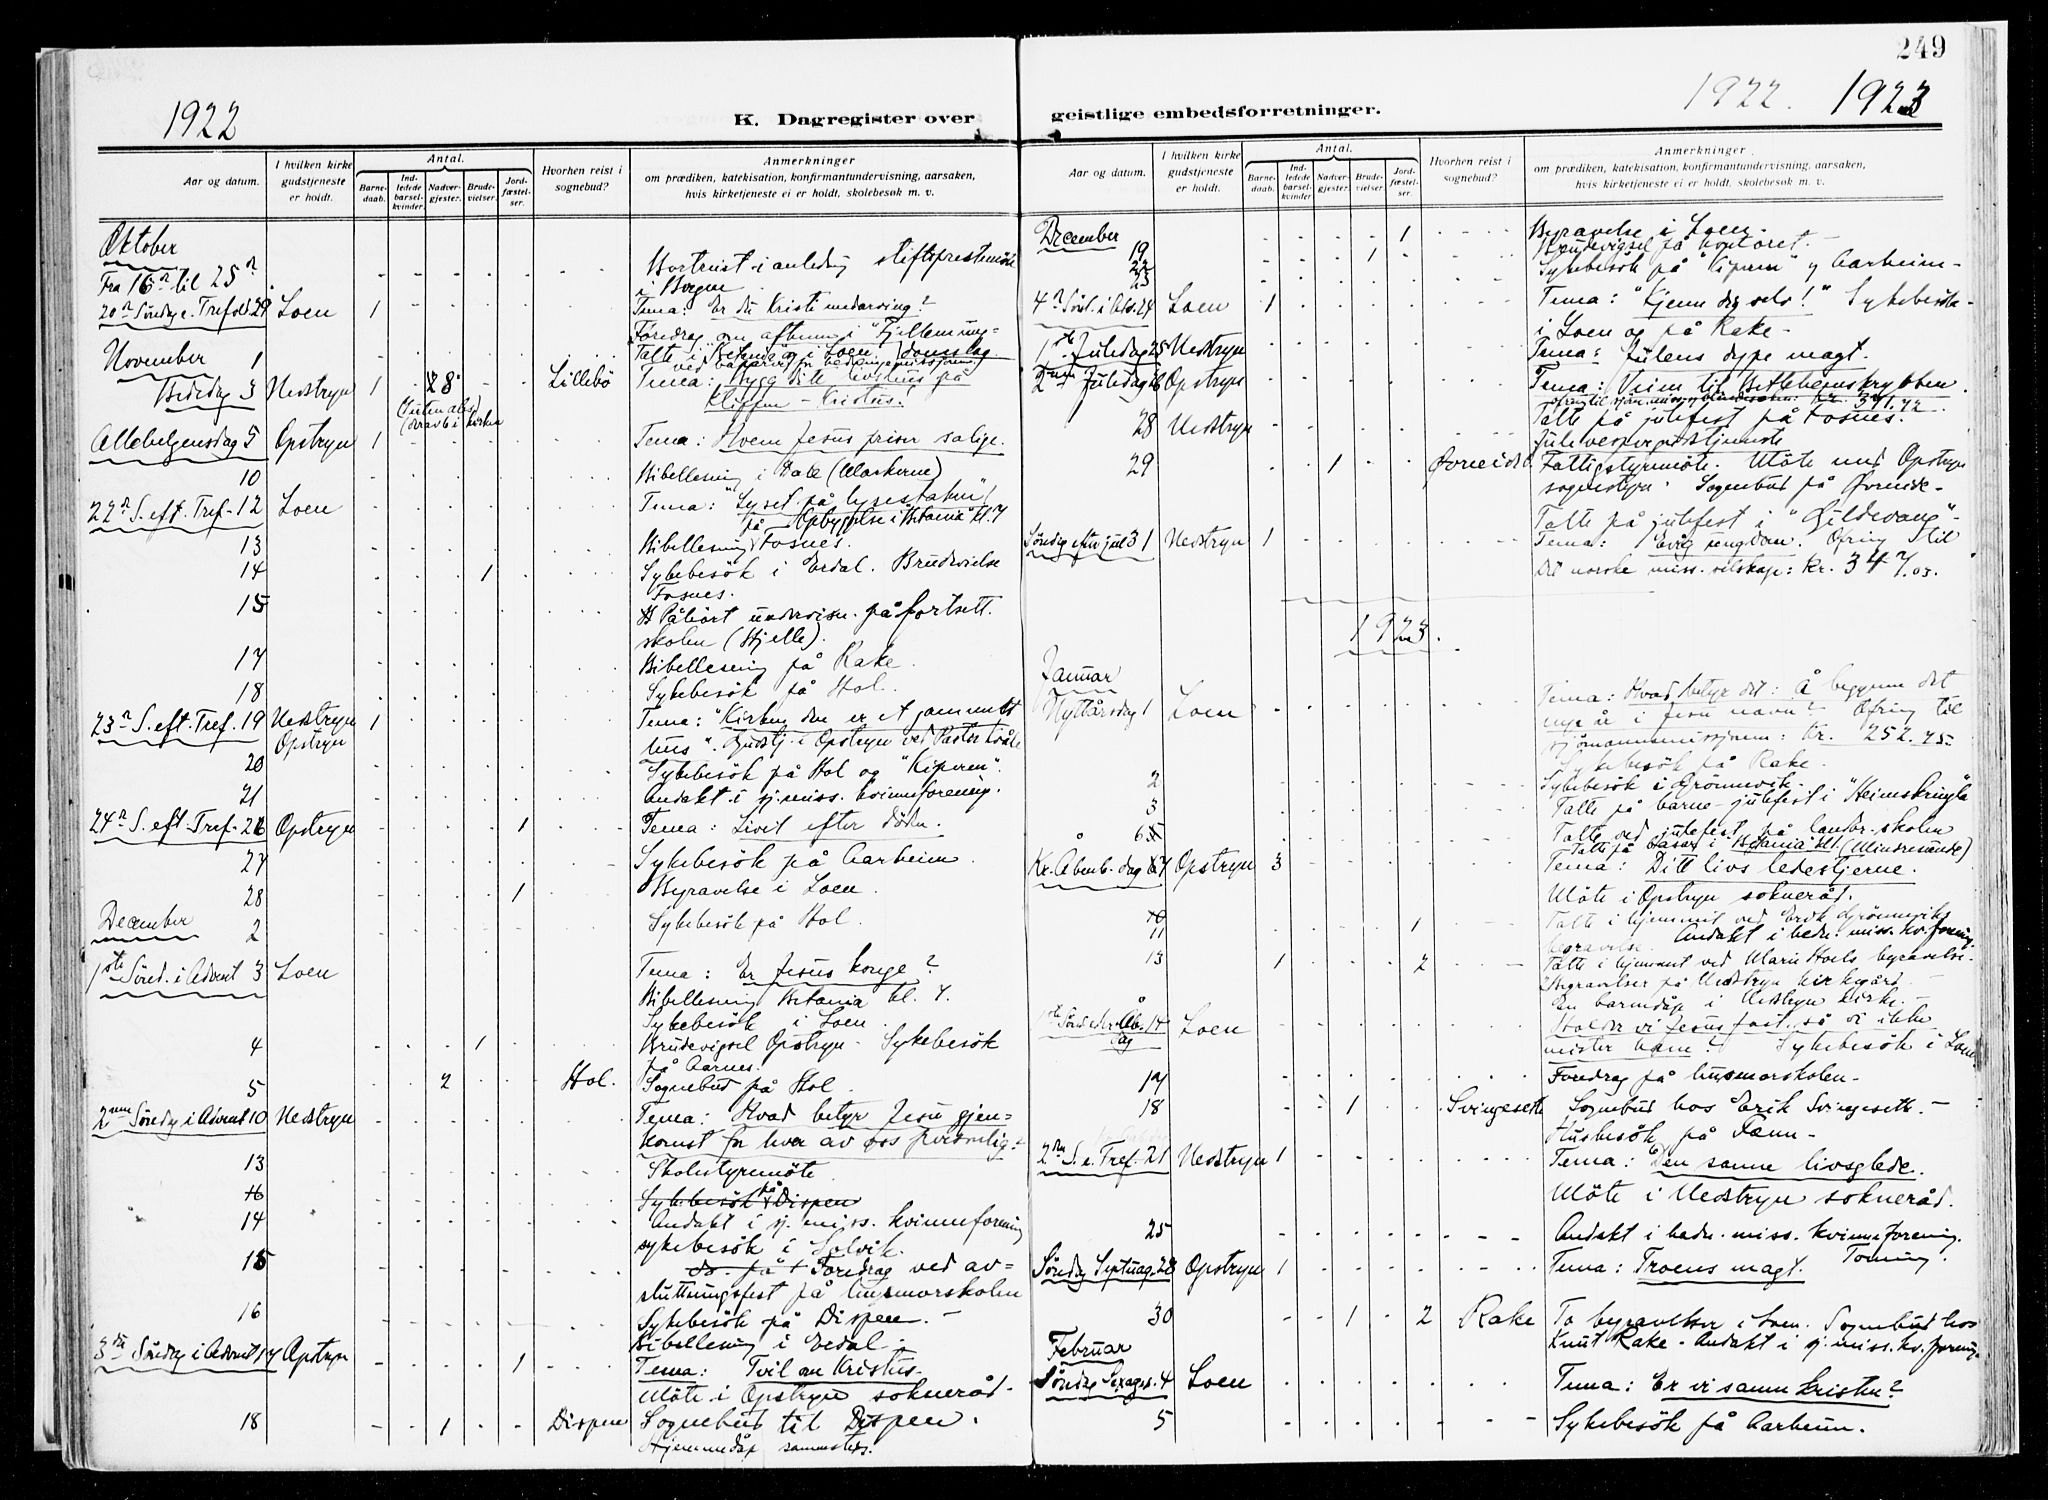 249
1922
K. Dagregister over geistlige embedsforretninger.
1922. 1923
Aar og datum.
I hvilken kirke gudstjeneste er holdt.
Antal.
Barnedaab.
Indledede barselkvinder.
Nadvergjester.
Brudevielser.
Jordfæstelser.
Hvorhen reist i sognebud?
Anmerkninger
om prædiken, katekisation, konfirmantundervisning, aarsaken,
hvis kirketjeneste ei er holdt, skolebesøk m. v.
Oktober
Fra 16 til 25 Bortreist i anledning stiftsprestemöte
i Bergen
20 Söndag e. Tref. 29 Loen 1 Tema: Er du Kristi medarving?
Foredrag om aftenen i "Fjellom ung=
domslag
November 1 Talte i Betania og i Loen
Bededag 3 Nedstryn 1 8 Lillebö Tema: Bygg ditt livshus på
Klippen - Kristus!
Allehelgensdag 5 Opstryn 1 Tema: Hvem Jesus priser salige.
10 Bibellesning i Dale
22 S. eft. Tref. 12 Loen Tema: "Lyset på lysestaken"
Opbyggelse i Betania kl. 7
13 Bibellesning Fosnes.
14 1 Sykebesök i Erdal. Brudevielse
Fosnes.
15 Påhört undervisn. på fortsett.
skolen (Hjelle).
17 Bibellesning på Rake.
18 Sykebesök på Hol.
23 S. eft. Tref. 19 Nedstryn 1 Tema: "Kirken den er et gammelt
Opstryn hus". Gudstj. i Opstryn ved Pastor
20 Sykebesök på Hol og "Kiperen".
21 Andakt i sj. miss. kvinneforening.
24 S. eft. Tref. 26 Opstryn 1 Tema: Livet efter döden.
27 Sykebesök på Aarheim.
28 1 Begravelse i Loen.
December
2 Sykebesök på Hol.
1ste Sönd. i Advent 3 Loen Tema: Er Jesus konge?
Bibellesning Betania kl. 7.
Sykebesök i Loen.
4 1 Brudevigsel Opstryn - Sykebesök
på Aarnes.
5 2 Hol. Sognebud på Hol.
2nen Söndag i Advent 10 Nedstryn Tema: Hvad betyr Jesu gjen=
komst for hver av oss personlig?
13 Skolestyremöte
Sykebesök på Dispen
14 Andakt i sj. miss. kvinneforening
sykebesök i Solvik.
15 do. på Foredrag ved av=
slutningsfest på husmorskolen
16 Sykebesök på Dispen. -
Bibellesning i Erdal -
3die Söndag i Advent 17 Opstryn 1 Tema: Tvil om Kristus.
Möte i Opstryn sokneråd.
18 1 Dispen Sognebud til Dispen.
Hjemmedåp sammesteds.
Aar og datum.
I hvilken kirke gudstjeneste er holdt.
Antal.
Barnedaab.
Indledede barselkvinder.
Nadvergjester.
Brudevielser.
Jordfæstelser.
Hvorhen reist i sognebud?
Anmerkninger
om prædiken, katekisation, konfirmantundervisning, aarsaken,
hvis kirketjeneste ei er holdt, skolebesøk m. v.
December 1 Begravelse i Loen.
19 1 Brudevigsel på kontoret. -
22 Sykebesök på "Kiperen" og Aarheim -
23
4 Sönd. i Adv. 24 Loen 1 Tema: "Kjenn dig selv!" Sykebesök
i Loen og på Rake -
1ste Juledag 25 Nedstryn Tema: Julens dype magt.
2nen Juledag 26 Opstryn Tema: Veien til Betlehemskrybben.
Kr. 371.42
28 Nedstryn Talte på julefest på Fosnes.
Julevespergudstjeneste
29 1 Övreeide Fattigstyremöte. Möte med Opstryn
sognestyre. Sognebud på Övreeide -
Talte på julefest i "Gildevang" -
Söndag efter jul 31 Nedstryn 1 Tema: Evig ungdom. Ofring til
Det norske miss. selskap: kr. 347.03.
1923.
Januar
Nyttårsdag 1 Loen Tema: Hvad betyr det: Å begynne det
nye år i Jesu navn? Ofring til
sjömannsmissjonen: Kr. 252.75.
Sykebesök på Rake.
2 Sykebesök i Grönnevik.
3 Talte på barne-julefest i "Heimskringla
6 Talte ved julefest på landbr. skolen
Talte på basar i Betania kl.
Kr. Åbenb. dag 7 Opstryn 3 Tema: Ditt livs ledestjerne.
Möte i Opstryn sokneråd.
10 Talte i hjemmet ved Erik Grönneviks
11 1 begravelse. Andakt i hedn. miss. kv. forening.
13 1 2 Talte i hjemmet ved Marie Hoels begravelse.
2 Begravelser på Nedstryn kirkegård.
En barnedåp i Nedstryn kirke. -
1ste Sönd. efter Åb. dag 14 Loen Holder vi Jesus fast, så vi ikke
mister ham? Sykebesök i Loen
17 Foredrag på husmorskolen -
18 1 Svingeseth Sognebud hos Erik Svingeseth. -
Husbesök på Tenn -
2nen S. e. Tref. 21 Nedstryn 1 Tema: Den sanne livsglede.
Möte i Nedstryn sokneråd.
25 Andakt i hedn. miss. kvinneforening.
Tonning.
Söndag Septuag. 28 Opstryn 1 Tema: Troens magt.
30 1 2 Rake To begravelser i Loen. Sognebud hos
Knut Rake - Andakt i sj. miss. kv. forening.
Februar
Söndag Sexages. 4 Loen Tema: Er vi sanne kristne?
5 Sykebesök på Aarheim.